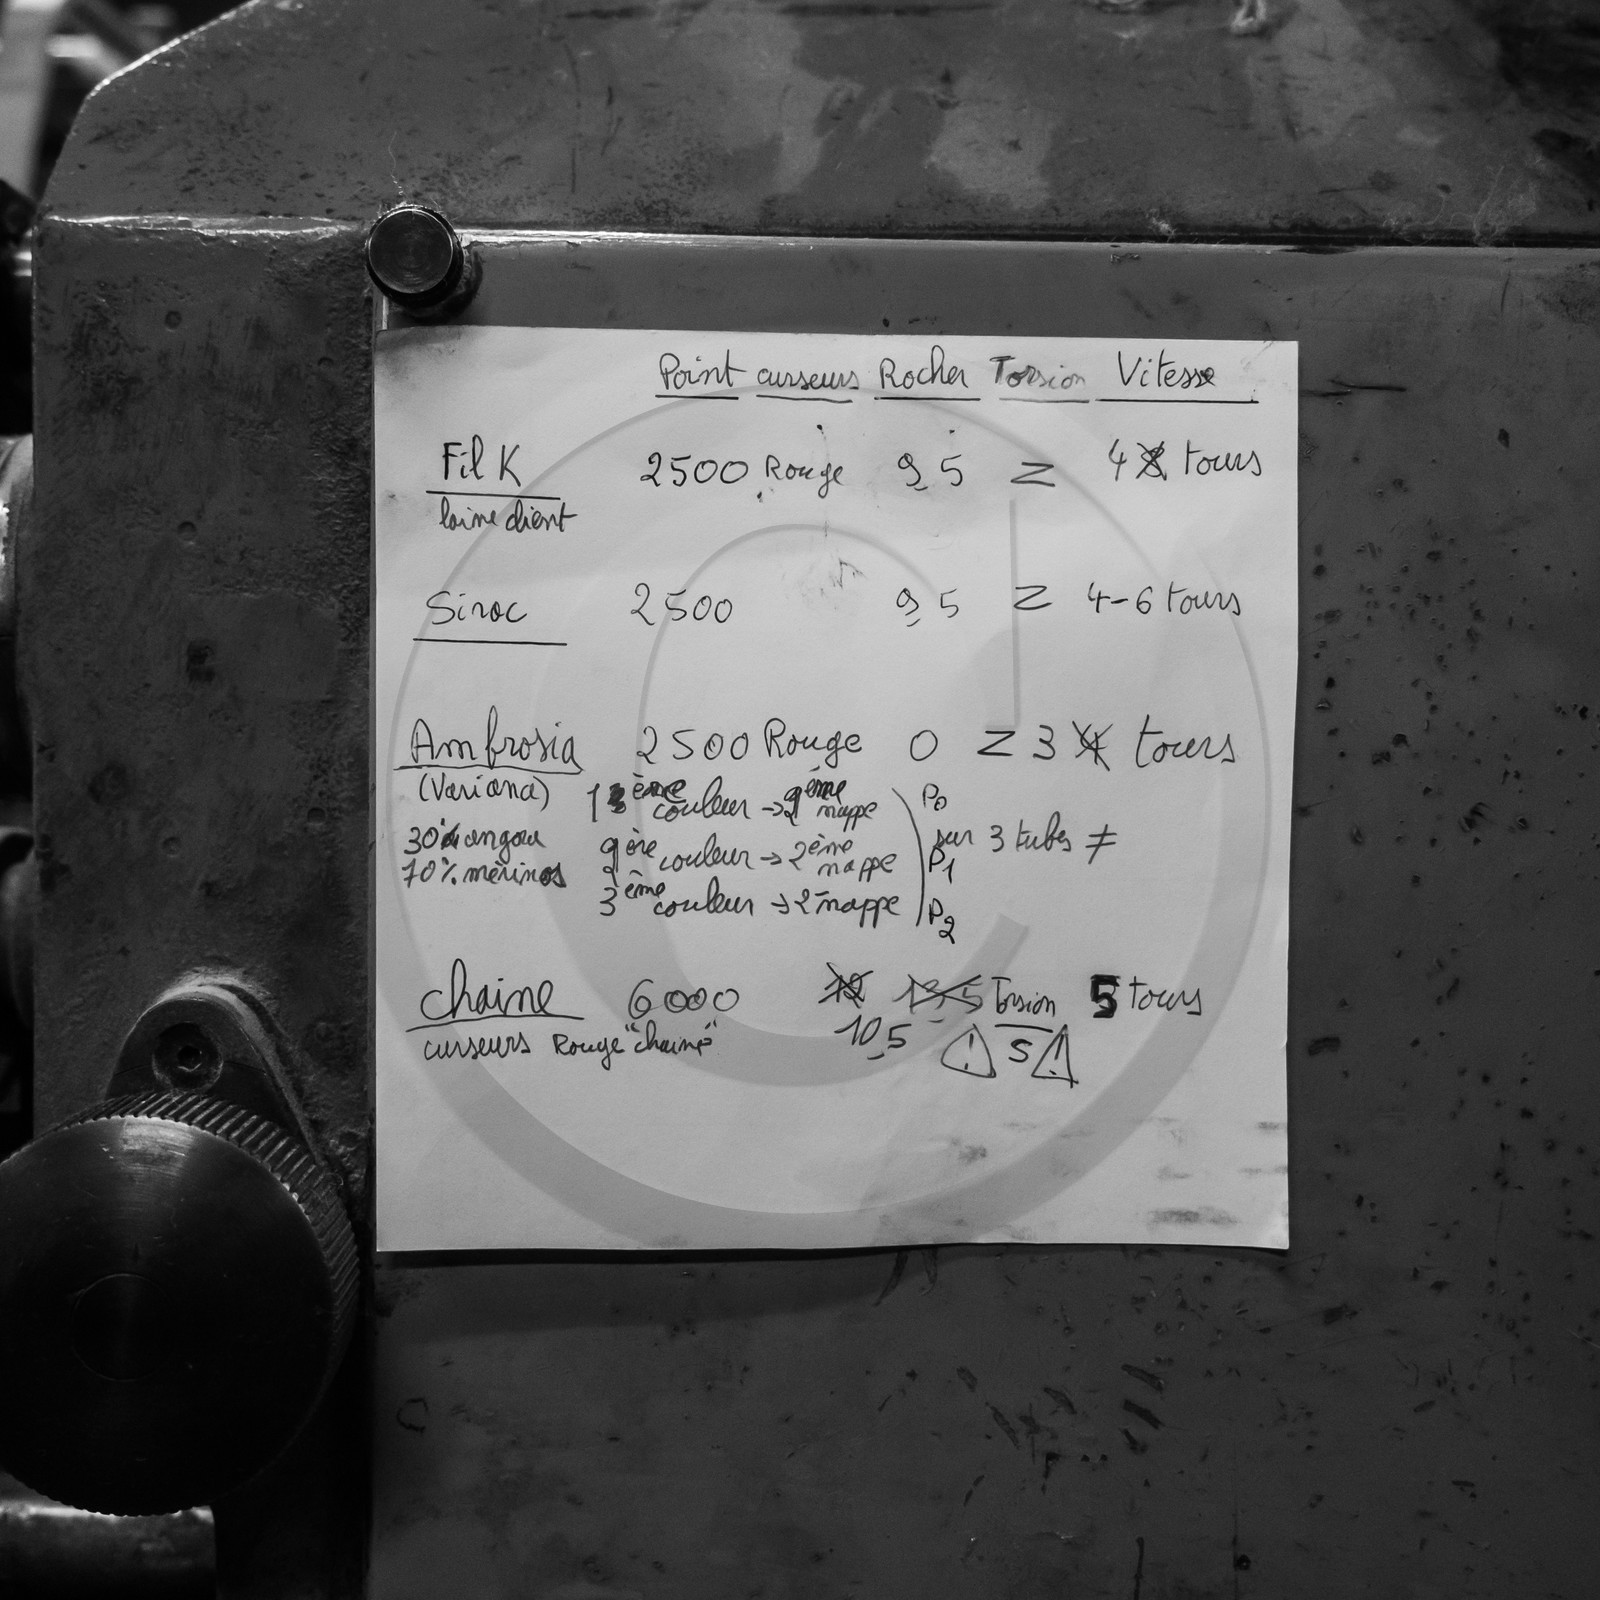 Point curseurs Rocher Torsion Vitesse
Fil K 2500 Rouge 9,5 Z 4 tours
laine client
Siroc 2500 9,5 Z 4-6 tours
Ambrosia 2500 Rouge 0 Z 3 4 tours
(Variana) 1ère couleur → 2ème nappe P0
30% angora 2ère couleur → 2ème nappe sur 3 tubes ≠
70% mérinos P1
3ème couleur → 2 nappe P2
chaine 6000 12 13,5 Torsion 5 tours
curseurs Rouge "chaine" 10,5 ! S !